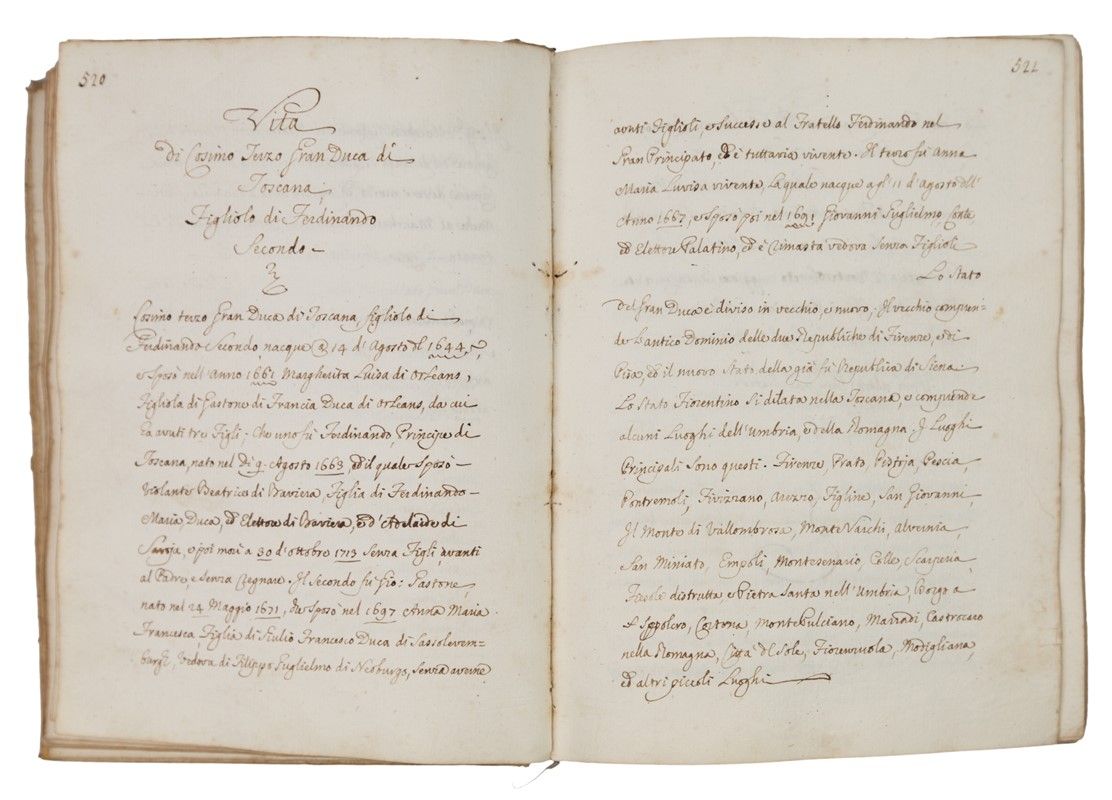 520
Vita
di Cosimo Terzo Gran Duca di
Toscana,
Figliolo di Ferdinando
Secondo -
Cosimo terzo Gran Duca di Toscana, figliolo di
Ferdinando Secondo, nacque a 14 d'Agosto del 1644,
e sposò nell'Anno 1661 Margherita Luisa di Orleans,
Figliola di Gastone di Francia Duca di Orleans, da cui
ha avuti tre Figli; Che uno fù Ferdinando, Principe di
Toscana, nato nel di 9. Agosto 1663, ed il quale sposò -
Violante Beatrice di Baviera, Figlia di Ferdinando -
Maria Duca, ed Elettore di Baviera, e d'Adelaide di
Savoja, e poi morì a 30 d'ottobre 1713 Senza Figli, avanti
al Padre, e senza Regnare. Il secondo fù Gio: Gastone,
nato nel 24 Maggio 1671, che sposò nel 1697 Anna Maria
Francesca, Figlia di Giulio Francesco Duca di Sassolavem-
burgi, Vedova di Filippo Guglielmo di Neoburgo, senza averne
521
avuti Figlioli, e successe al Fratello Ferdinando nel
Gran Principato, ed è tuttavia vivente. Il terzo fù Anna
Maria Luvisa vivente, la quale nacque agl' 11 d'Agosto dell'
Anno 1667, e sposò poi nel 1691 Giovanni Guglielmo, Conte,
ed Elettore Palatino, ed è rimasta vedova senza Figlioli
Lo Stato
del Gran Duca è diviso in vecchio, e nuovo. Il vecchio compren-
de l'antico Dominio delle due Republiche di Firenze, e di
Pisa, ed il nuovo stato della già fù Republica di Siena
Lo Stato Fiorentino si dilata nella Toscana, e comprende
alcuni Luoghi dell'Umbria, e della Romagna. I Luoghi
Principali sono questi. Firenze, Prato, Pistoja, Pescia,
Pontremoli, Fivizzano, Arezzo, Figline, San Giovanni,
Il Monte di Vallombrosa, Monte Varchi, Alvernia,
San Miniato, Empoli, Montesenario, Colle, Scarperia,
Fiesole distrutta, e Pietra Santa nell'Umbria, Borgo a
S. Sepolcro, Cortona, Monte Pulciano, Marradi, Castrocaro
nella Romagna, Città del Sole, Fiorenzuola, Modigliana,
ed altri piccoli Luoghi